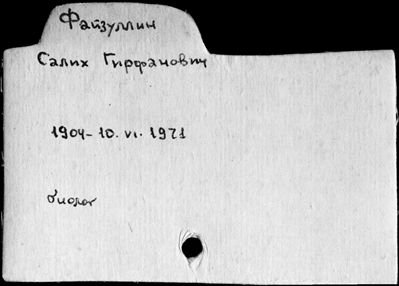 Файзуллин
Салих Гирфанович
1904-10.VI.1971
биолог